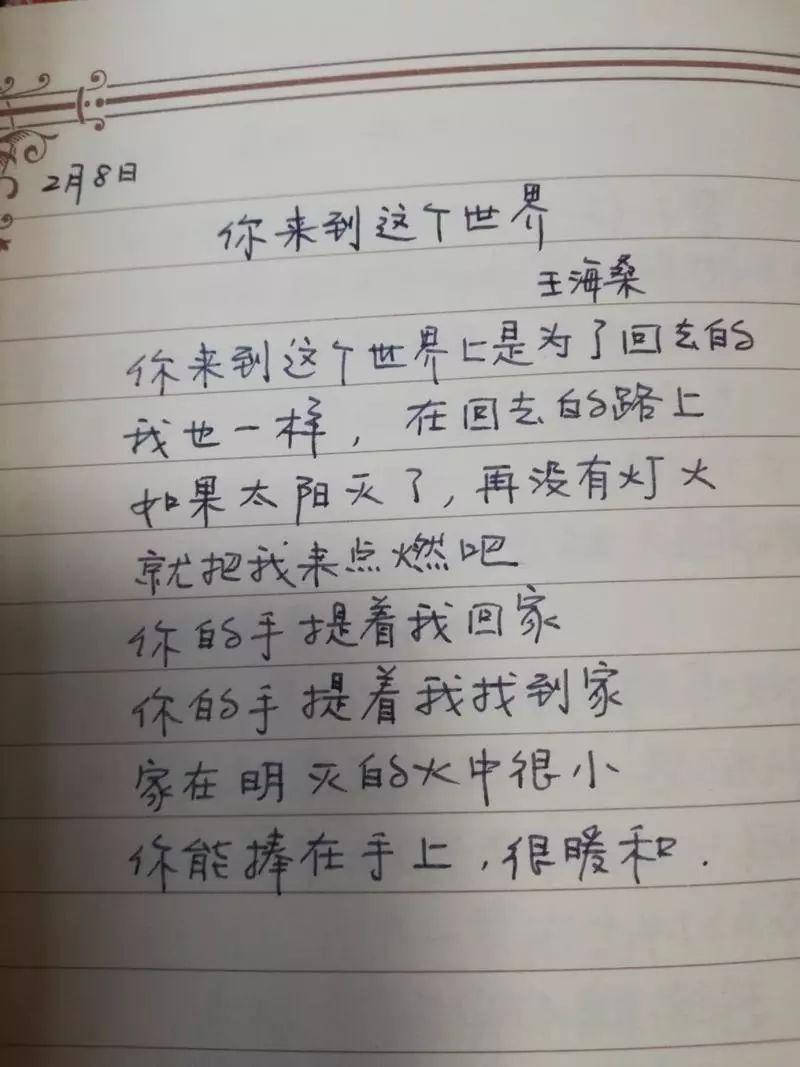 2月8日
你来到这个世界
王海桑
你来到这个世界上是为了回去的
我也一样，在回去的路上
如果太阳灭了，再没有灯火
就把我来点燃吧
你的手提着我回家
你的手提着我找到家
家在明灭的火中很小
你能捧在手上，很暖和.